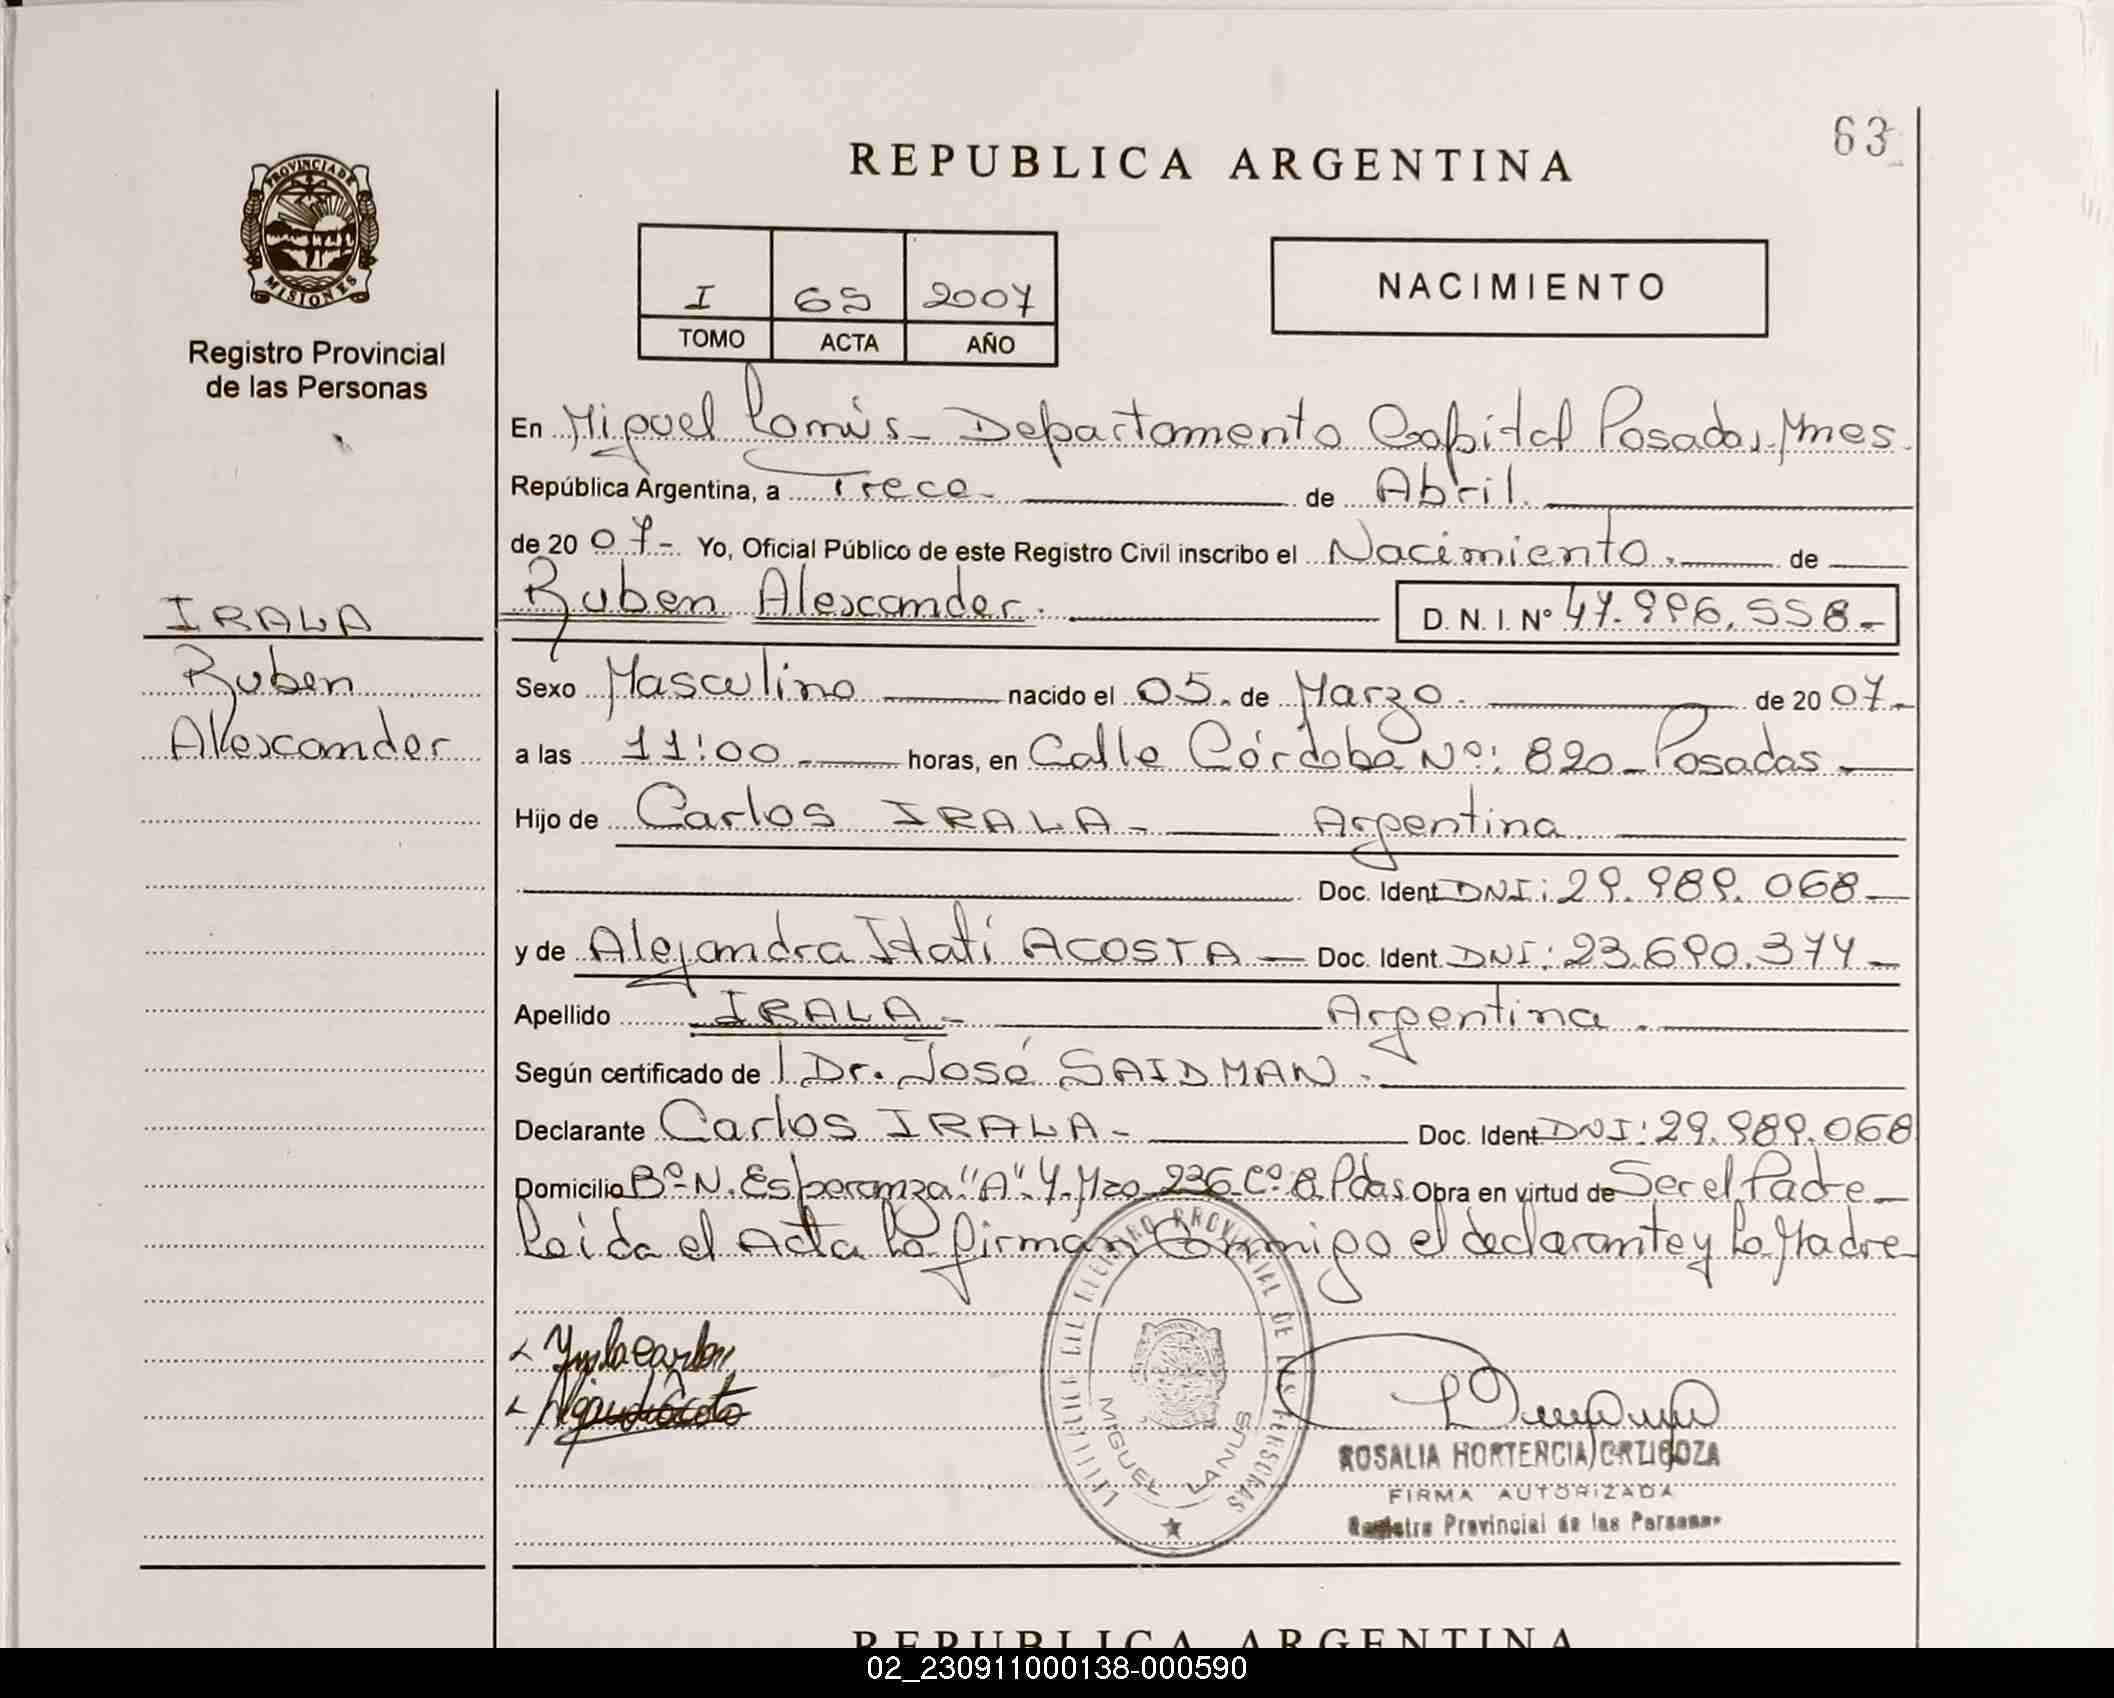 63
REPUBLICA ARGENTINA
PROVINCIA DE
MISIONES
Registro Provincial
de las Personas
I 65 2007
TOMO ACTA AÑO
NACIMIENTO
En Miguel Lanús - Departamento Capital Posadas, Mnes.
República Argentina, a Trece - de Abril.
de 2007 - Yo, Oficial Público de este Registro Civil inscribo el Nacimiento. de
Ruben Alexander. D. N. I. Nº 47.996.558 -
IRALA
Ruben
Alexander
Sexo Masculino nacido el 05. de Marzo. de 2007 -
a las 11:00 horas, en Calle Córdoba Nº: 820 - Posadas -
Hijo de Carlos IRALA - Argentina
Doc. Ident DNI: 29.989.068 -
y de Alejandra Itatí ACOSTA - Doc. Ident. DNI: 23.690.374 -
Apellido IRALA - Argentina.
Según certificado de Dr. José SAIDMAN.
Declarante Carlos IRALA - Doc. Ident DNI: 29.989.068
Domicilio Bº N. Esperanza "A" 4. Mzo 236 Cº 8 Pdas Obra en virtud de Ser el Padre -
Leída el Acta la firman Conmigo el declarante y la Madre
Irala Carlos
REGISTRO PROVINCIAL DE LAS PERSONAS
MIGUEL LANUS
ROSALIA HORTENCIA ORTIGOZA
FIRMA AUTORIZADA
Registro Provincial de las Personas
REPUBLICA ARGENTINA
02_230911000138-000590